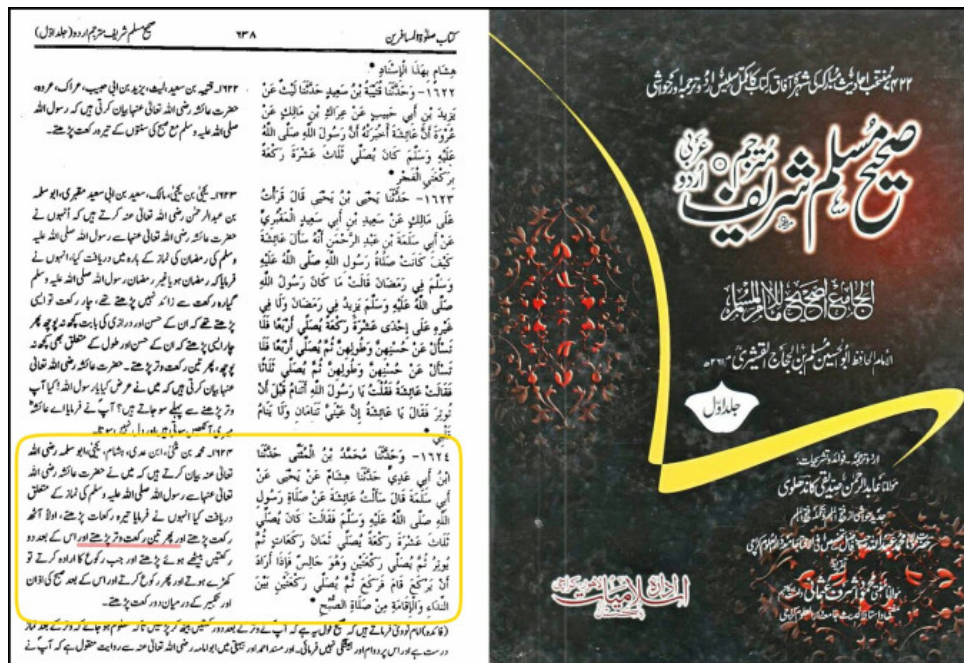 صحیح مسلم شریف مترجم اردو (جلد اول)
۶۳۸
کتاب صلوٰۃ المسافرین
هِشَامٍ بِهَذَا الْإِسْنَادِ •
١٦٢٢- وَحَدَّثَنَا قُتَيْبَةُ بْنُ سَعِيدٍ حَدَّثَنَا لَيْثٌ عَنْ
يَزِيدَ بْنِ أَبِي حَبِيبٍ عَنْ عِرَاكِ بْنِ مَالِكٍ عَنْ
عُرْوَةَ أَنَّ عَائِشَةَ أَخْبَرَتْهُ أَنَّ رَسُولَ اللَّهِ صَلَّى اللَّهُ
عَلَيْهِ وَسَلَّمَ كَانَ يُصَلِّي ثَلَاثَ عَشْرَةَ رَكْعَةً
بِرَكْعَتَيِ الْفَجْرِ •
١٦٢٣- حَدَّثَنَا يَحْيَى بْنُ يَحْيَى قَالَ قَرَأْتُ
عَلَى مَالِكٍ عَنْ سَعِيدِ بْنِ أَبِي سَعِيدٍ الْمَقْبُرِيِّ
عَنْ أَبِي سَلَمَةَ بْنِ عَبْدِ الرَّحْمَنِ أَنَّهُ سَأَلَ عَائِشَةَ
كَيْفَ كَانَتْ صَلَاةُ رَسُولِ اللَّهِ صَلَّى اللَّهُ عَلَيْهِ
وَسَلَّمَ فِي رَمَضَانَ قَالَتْ مَا كَانَ رَسُولُ اللَّهِ
صَلَّى اللَّهُ عَلَيْهِ وَسَلَّمَ يَزِيدُ فِي رَمَضَانَ وَلَا فِي
غَيْرِهِ عَلَى إِحْدَى عَشْرَةَ رَكْعَةً يُصَلِّي أَرْبَعًا فَلَا
تَسْأَلْ عَنْ حُسْنِهِنَّ وَطُولِهِنَّ ثُمَّ يُصَلِّي أَرْبَعًا فَلَا
تَسْأَلْ عَنْ حُسْنِهِنَّ وَطُولِهِنَّ ثُمَّ يُصَلِّي ثَلَاثًا
فَقَالَتْ عَائِشَةُ فَقُلْتُ يَا رَسُولَ اللَّهِ أَتَنَامُ قَبْلَ أَنْ
تُوتِرَ فَقَالَ يَا عَائِشَةُ إِنَّ عَيْنَيَّ تَنَامَانِ وَلَا يَنَامُ
قَلْبِي •
١٦٢٤- وَحَدَّثَنَا مُحَمَّدُ بْنُ الْمُثَنَّى حَدَّثَنَا
ابْنُ أَبِي عَدِيٍّ حَدَّثَنَا هِشَامٌ عَنْ يَحْيَى عَنْ
أَبِي سَلَمَةَ قَالَ سَأَلْتُ عَائِشَةَ عَنْ صَلَاةِ رَسُولِ
اللَّهِ صَلَّى اللَّهُ عَلَيْهِ وَسَلَّمَ فَقَالَتْ كَانَ يُصَلِّي
ثَلَاثَ عَشْرَةَ رَكْعَةً يُصَلِّي ثَمَانَ رَكَعَاتٍ ثُمَّ
يُوتِرُ ثُمَّ يُصَلِّي رَكْعَتَيْنِ وَهُوَ جَالِسٌ فَإِذَا أَرَادَ
أَنْ يَرْكَعَ قَامَ فَرَكَعَ ثُمَّ يُصَلِّي رَكْعَتَيْنِ بَيْنَ
النِّدَاءِ وَالْإِقَامَةِ مِنْ صَلَاةِ الصُّبْحِ •
۱۶۲۲۔ قتیبہ بن سعید، لیث، یزید بن ابی حبیب، عراک، عروہ،
حضرت عائشہ رضی اللہ تعالیٰ عنہا بیان کرتی ہیں کہ رسول اللہ
صلی اللہ علیہ وسلم مع صبح کی سنتوں کے تیرہ رکعت پڑھتے۔
۱۶۲۳۔ یحییٰ بن یحییٰ، مالک، سعید بن ابی سعید مقبری، ابوسلمہ
بن عبدالرحمٰن رضی اللہ تعالیٰ عنہ بیان کرتے ہیں کہ انہوں نے
حضرت عائشہ رضی اللہ تعالیٰ عنہا سے رسول اللہ صلی اللہ علیہ
وسلم کی رمضان کی نماز کے بارہ میں دریافت کیا، انہوں نے
فرمایا کہ رمضان ہو یا غیر رمضان، رسول اللہ صلی اللہ علیہ وسلم
گیارہ رکعت سے زائد نہیں پڑھتے تھے، چار رکعت تو ایسی
پڑھتے تھے کہ ان کے حسن اور درازی کی بابت کچھ نہ پوچھ پھر
چار ایسی پڑھتے کہ ان کے حسن اور طول کے متعلق بھی کچھ نہ
پوچھ، پھر تین رکعت وتر پڑھتے۔ حضرت عائشہ رضی اللہ تعالیٰ
عنہا بیان کرتی ہیں کہ میں نے عرض کیا یا رسول اللہ! کیا آپ
وتر پڑھنے سے پہلے سو جاتے ہیں؟ آپ نے فرمایا اے عائشہؓ
میری آنکھیں سوتی ہیں اور دل نہیں سوتا۔
۱۶۲۴۔ محمد بن مثنیٰ، ابن عدی، ہشام، یحییٰ، ابوسلمہ رضی اللہ
تعالیٰ عنہ بیان کرتے ہیں کہ میں نے حضرت عائشہ رضی اللہ
تعالیٰ عنہا سے رسول اللہ صلی اللہ علیہ وسلم کی نماز کے متعلق
دریافت کیا انہوں نے فرمایا تیرہ رکعات پڑھتے، اولاً آٹھ
رکعت پڑھتے اور پھر تین رکعت وتر پڑھتے اور اس کے بعد دو
رکعتیں بیٹھے ہوئے پڑھتے اور جب رکوع کا ارادہ کرتے تو
کھڑے ہوتے اور پھر رکوع کرتے اور اس کے بعد صبح کی اذان
اور تکبیر کے درمیان دو رکعت پڑھتے۔
(فائدہ) امام نووی فرماتے ہیں کہ صحیح قول یہ ہے کہ آپ نے وتر کے بعد دو رکعتیں بیٹھ کر پڑھیں تاکہ معلوم ہو جائے کہ وتر کے بعد نماز
درست ہے اور اس پر دوام اور ہیشگی نہیں فرمائی۔ اور مسند احمد اور بیہقی میں ابوامامہ رضی اللہ تعالیٰ عنہ سے روایت منقول ہے کہ آپ نے
صحیح مسلم شریف
مترجم عربی اردو
الامام الحافظ ابوالحسین مسلم بن الحجاج القشیری
جلد اوّل
اردو ترجمہ۔ فوائد و تشریحات:
مولانا عابد الرحمٰن صدیقی کاندھلوی
ادارۂ اسلامیات